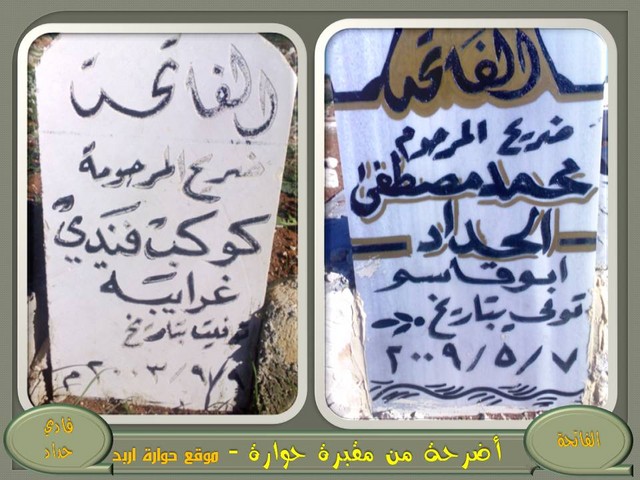 الفاتحة
ضريح المرحوم
محمد مصطفى
الحداد
ابو قاسم
توفي بتاريخ
٢٠٠٩/٥/٧
الفاتحة
ضريح المرحومة
كوكب فندي
غرايبه
توفيت بتاريخ
٢٠٠٣/٩/٩م
الفاتحة
أضرحة من مقبرة حوارة - موقع حوارة اربد
فادي
حداد